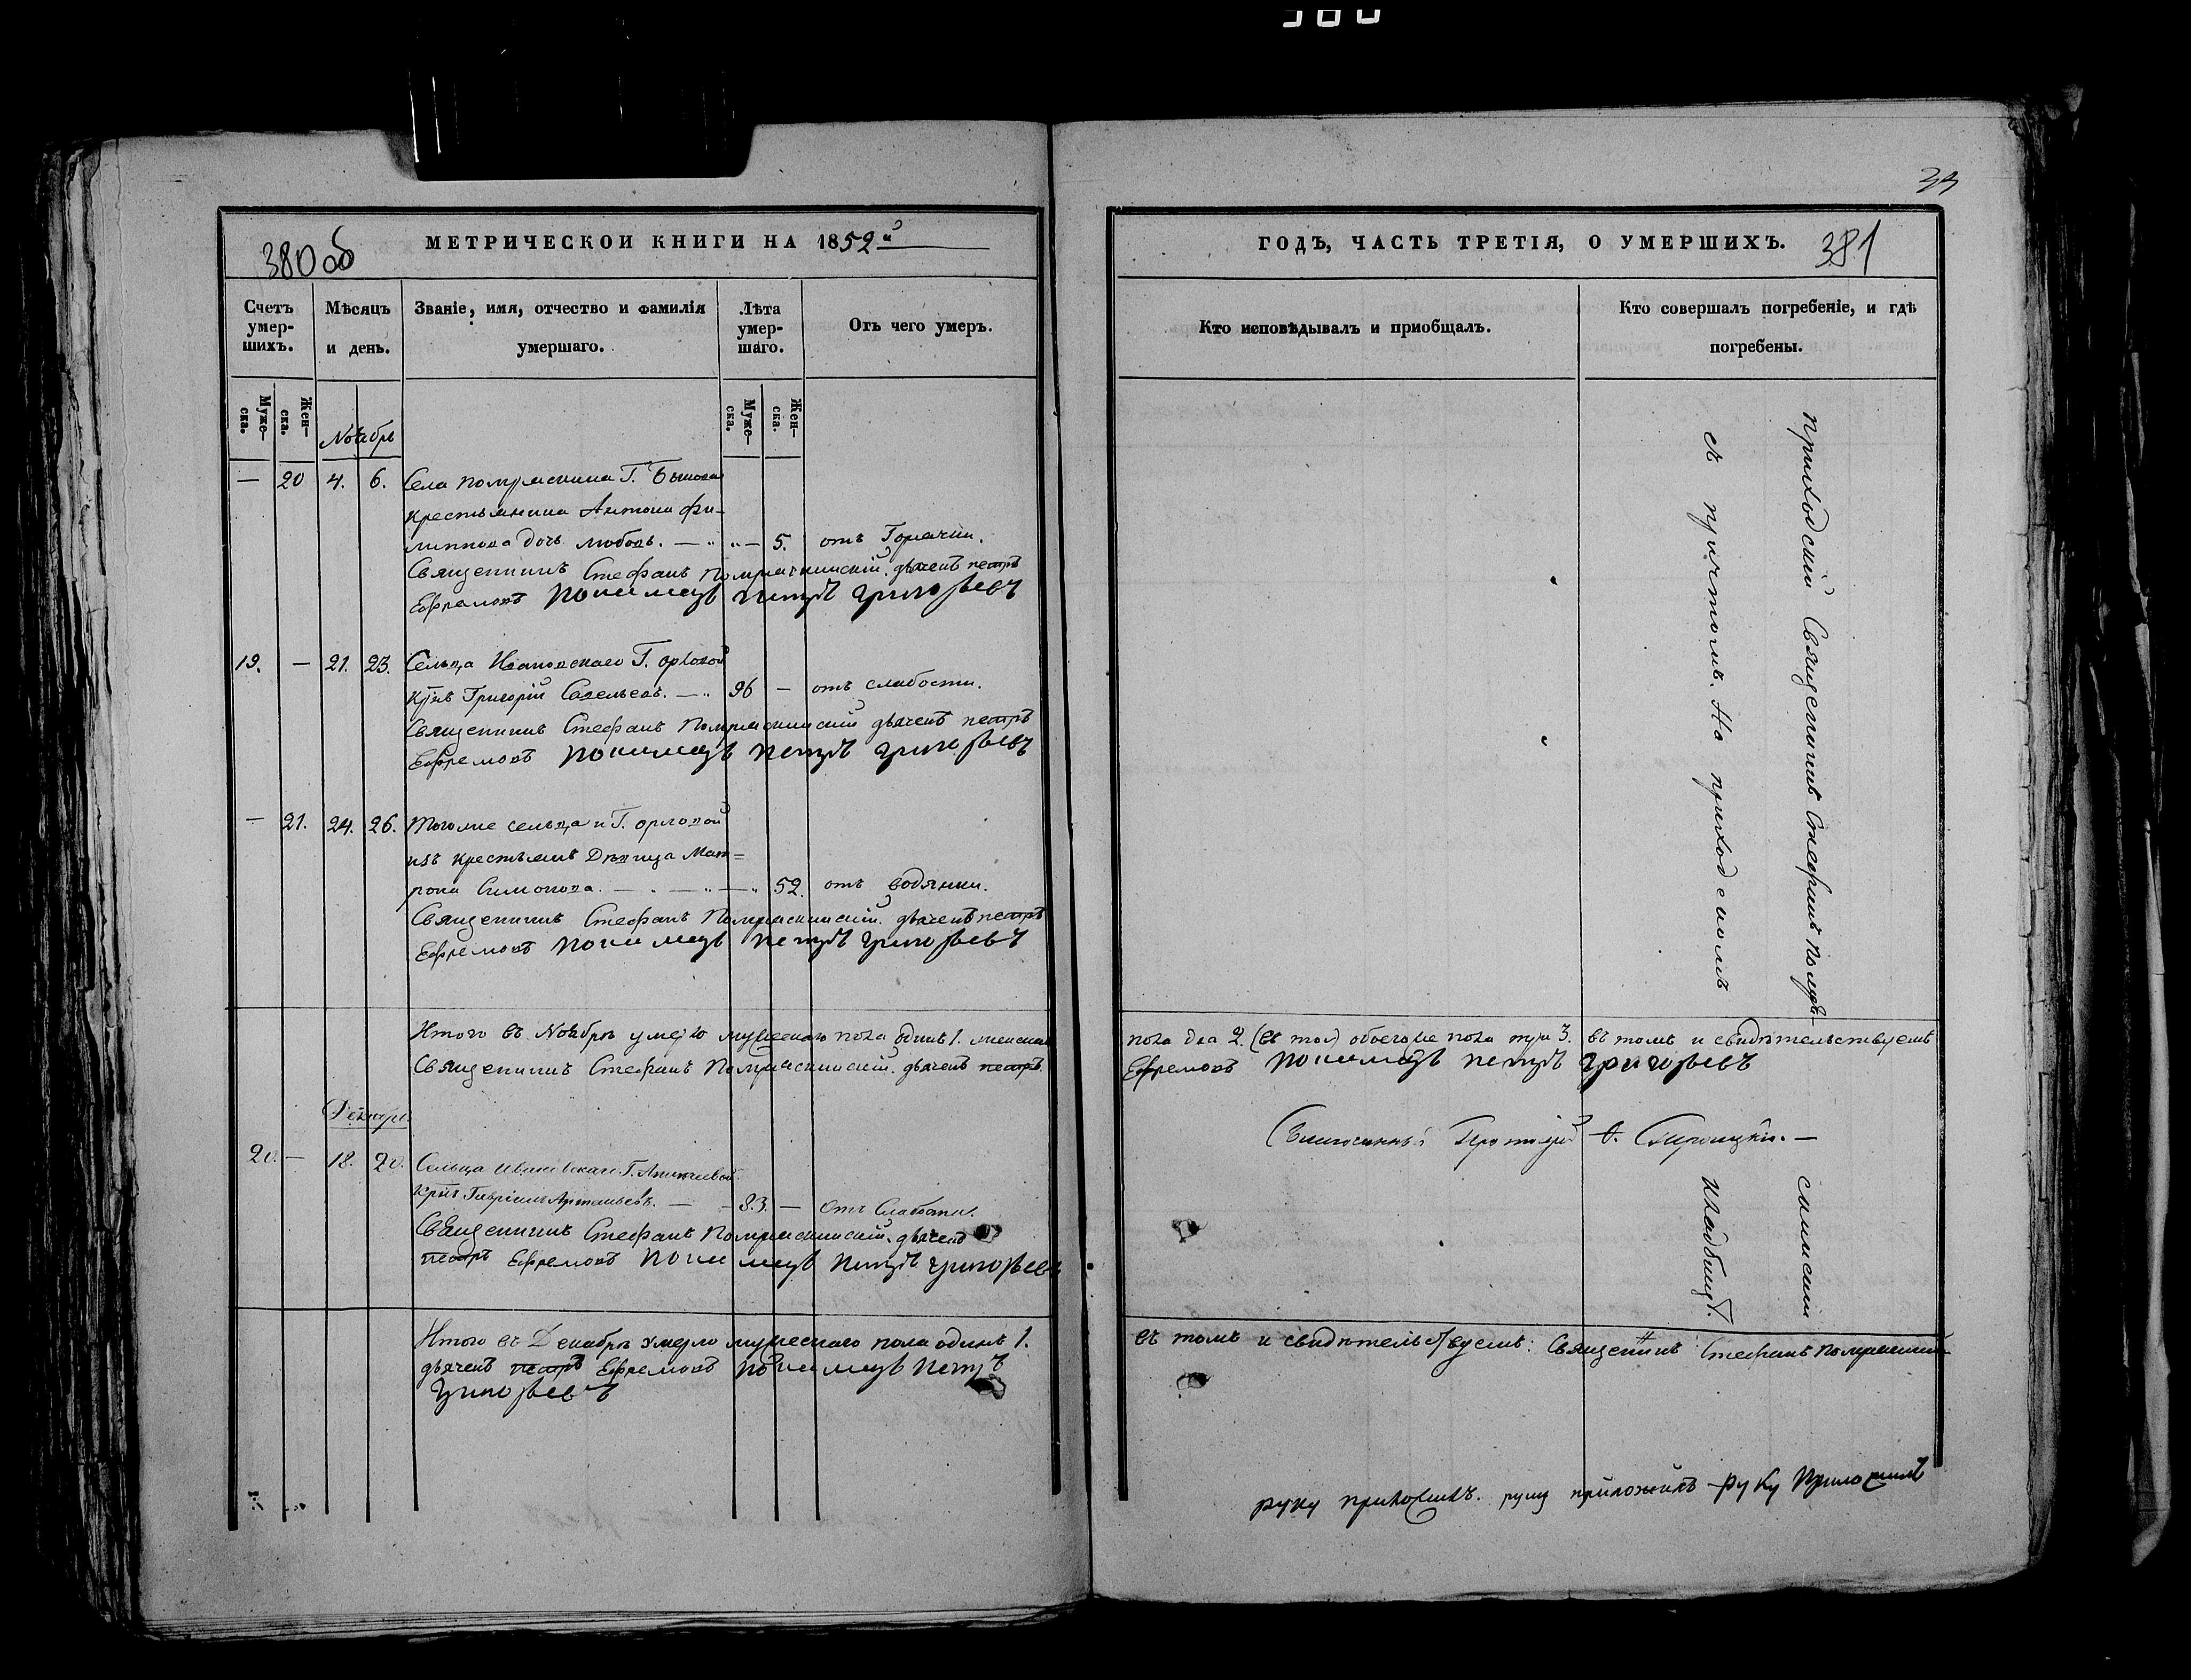 380
33
МЕТРИЧЕСКОИ КНИГИ НА 1852й
380об
ГОДЪ, ЧАСТЬ ТРЕТІЯ, О УМЕРШИХЪ.
381
Счетъ умер-
шихъ.
Мѣсяцъ
и день.
Званіе, имя, отчество и фамилія
умершаго.
Лѣта
умер-
шаго.
Отъ чего умеръ.
Муже-
ска.
Жен-
ска.
Муже-
ска.
Жен-
ска.
Кто исповѣдывалъ и приобщалъ.
Кто совершалъ погребеніе, и гдѣ
погребены.
Ноябрь
— 20 4. 6. Села Г.
крестьянина Антона Фи-
липпова дочь Любовь. — 5. отъ Горячки.
Священникъ Стефанъ дьячекъ Петръ
Ефремовъ Пономарь Петръ Григорьевъ
19. — 21. 23. Сельца Ивановскаго Г. Орловой
Григорій Савельевъ. — 96 — отъ слабости.
Священникъ Стефанъ дьячекъ Петръ
Ефремовъ Пономарь Петръ Григорьевъ
— 21. 24. 26. Тогоже сельца и Г. Орловой
изъ крестьянъ Дѣвица Мат=
рона Симонова. — 52. отъ водянки.
Священникъ Стефанъ дьячекъ Петръ
Ефремовъ Пономарь Петръ Григорьевъ
Итого въ Ноябрѣ умерло мужескаго пола одинъ 1. женскаго
пола два 2. обоегоже пола три 3. въ томъ и свидѣтельствуемъ
Священникъ Стефанъ дьячекъ Петръ
Ефремовъ Пономарь Петръ Григорьевъ
Благочинный Протоіерей
Декабрь
20. — 18. 20. Сельца Ивановскаго Г.
Артемьевъ. — 83. — Отъ Слабости.
Священникъ Стефанъ дьячекъ
Петръ Ефремовъ Пономарь Петръ Григорьевъ
Итого въ Декабрѣ умерло мужескаго пола одинъ 1.
въ томъ и свидѣтельствуемъ: Священникъ Стефанъ
дьячекъ Петръ Ефремовъ Пономарь Петръ
Григорьевъ
приходскій Священникъ Стефанъ
съ причтомъ. На приходскомъ
кладбищѣ.
руку приложилъ. руку приложилъ руку приложилъ